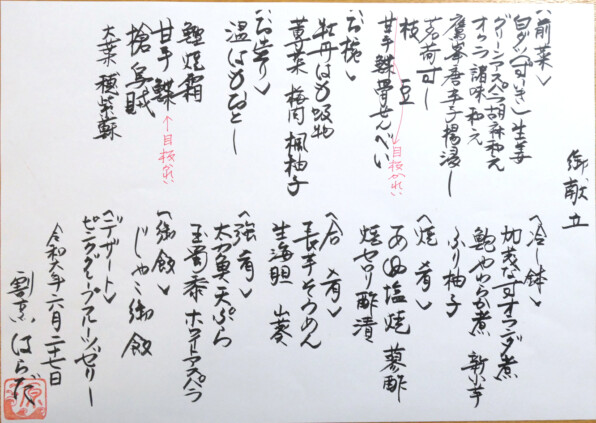 御献立
〈前菜〉
白ダツ(ずいき)生姜
グリーンアスパラ胡麻和え
オクラ諸味和え
鷹峯唐辛子揚浸し
茗荷すし
枝豆
甘手鰈骨せんべい
→目板がれい
〈お椀〉
牡丹はも吸物
蓴菜 梅肉 楓柚子
〈お造り〉
温はもおとし
鱧焼霜
甘手鰈
←目板がれい
槍烏賊
大葉 穂紫蘇
〈冷し鉢〉
加茂なすオランダ煮
鮑やわらか煮 新小芋
ふり柚子
〈焼肴〉
あゆ塩焼 蓼酢
焼セロリ酢漬
〈合肴〉
長芋そうめん
生海胆 山葵
〈強肴〉
太刀魚天ぷら
玉蜀黍 ホワイトアスパラ
〈御飯〉
じゃこ御飯
〈デザート〉
ピンクグレープフルーツゼリー
令和六年六月二十七日
割烹はらだ
原